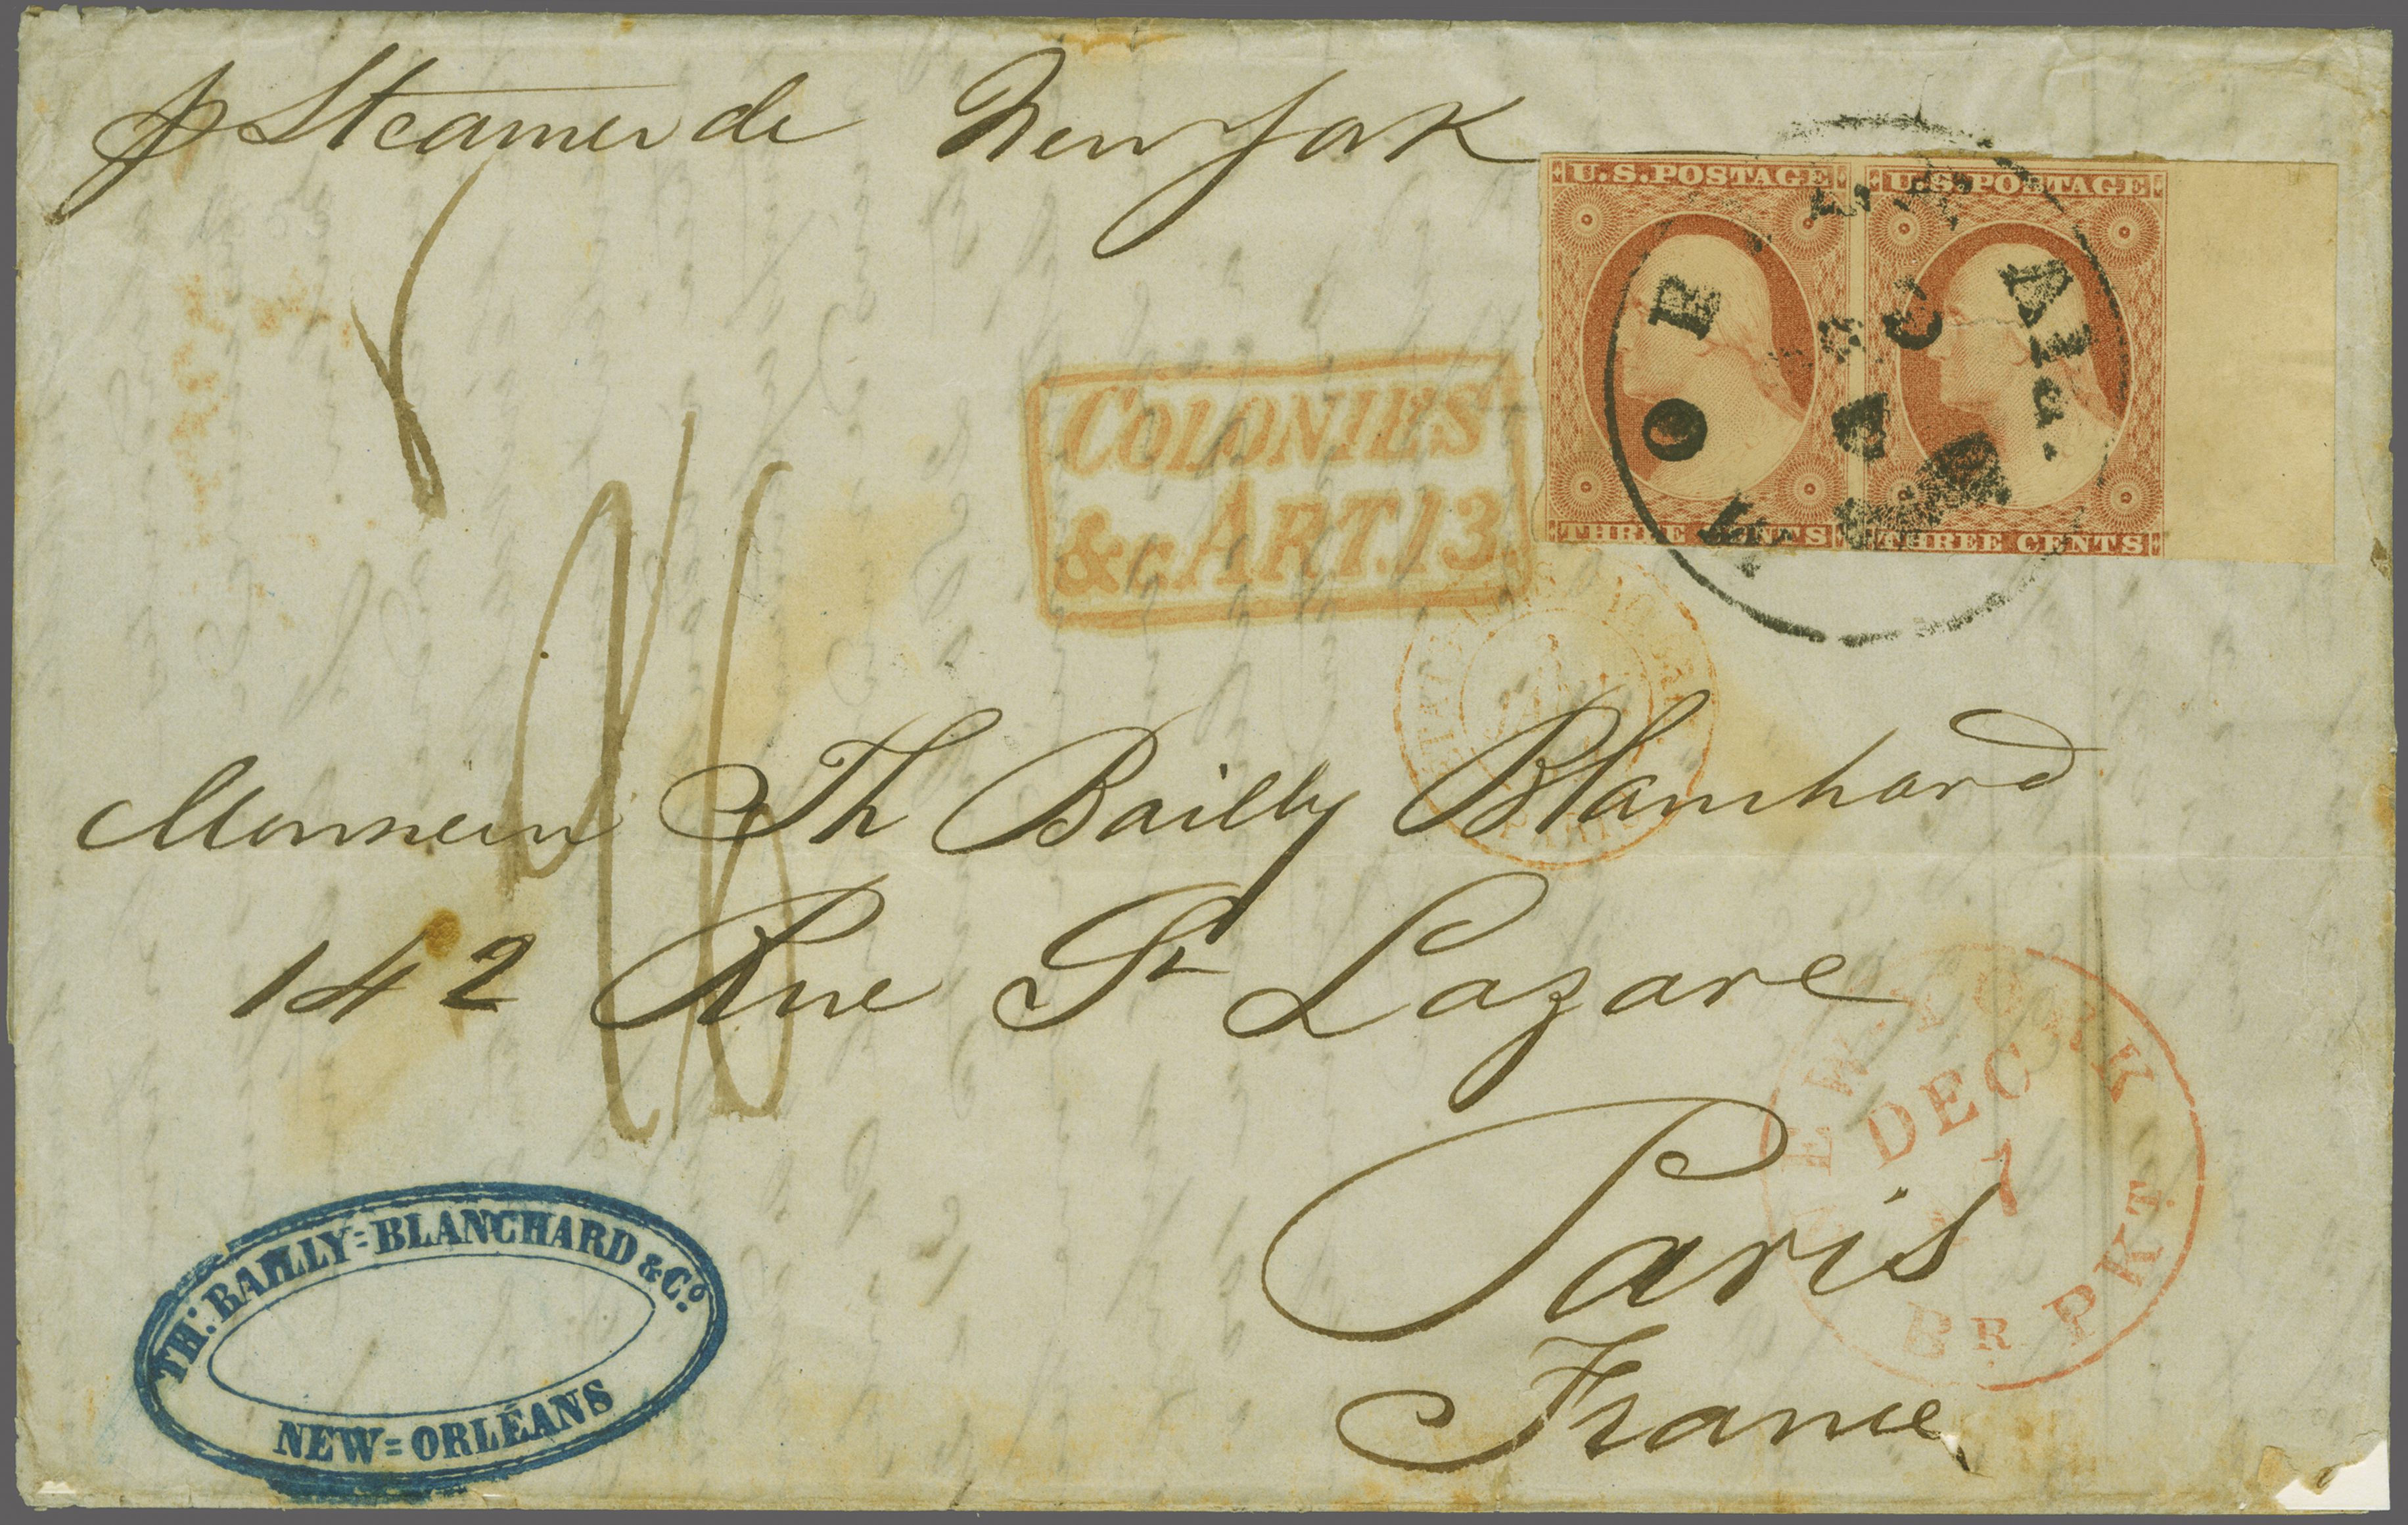 p Steamer de New York
U.S. POSTAGE
THREE CENTS
U.S. POSTAGE
THREE CENTS
Ala.
COLONIES
&c. ART. 13.
Monsieur Th Bailly Blanchard
142 Rue St Lazare
Paris
France
NEW YORK
DEC
7
BR PKT.
TH: BAILLY=BLANCHARD & Co.
NEW=ORLÉANS